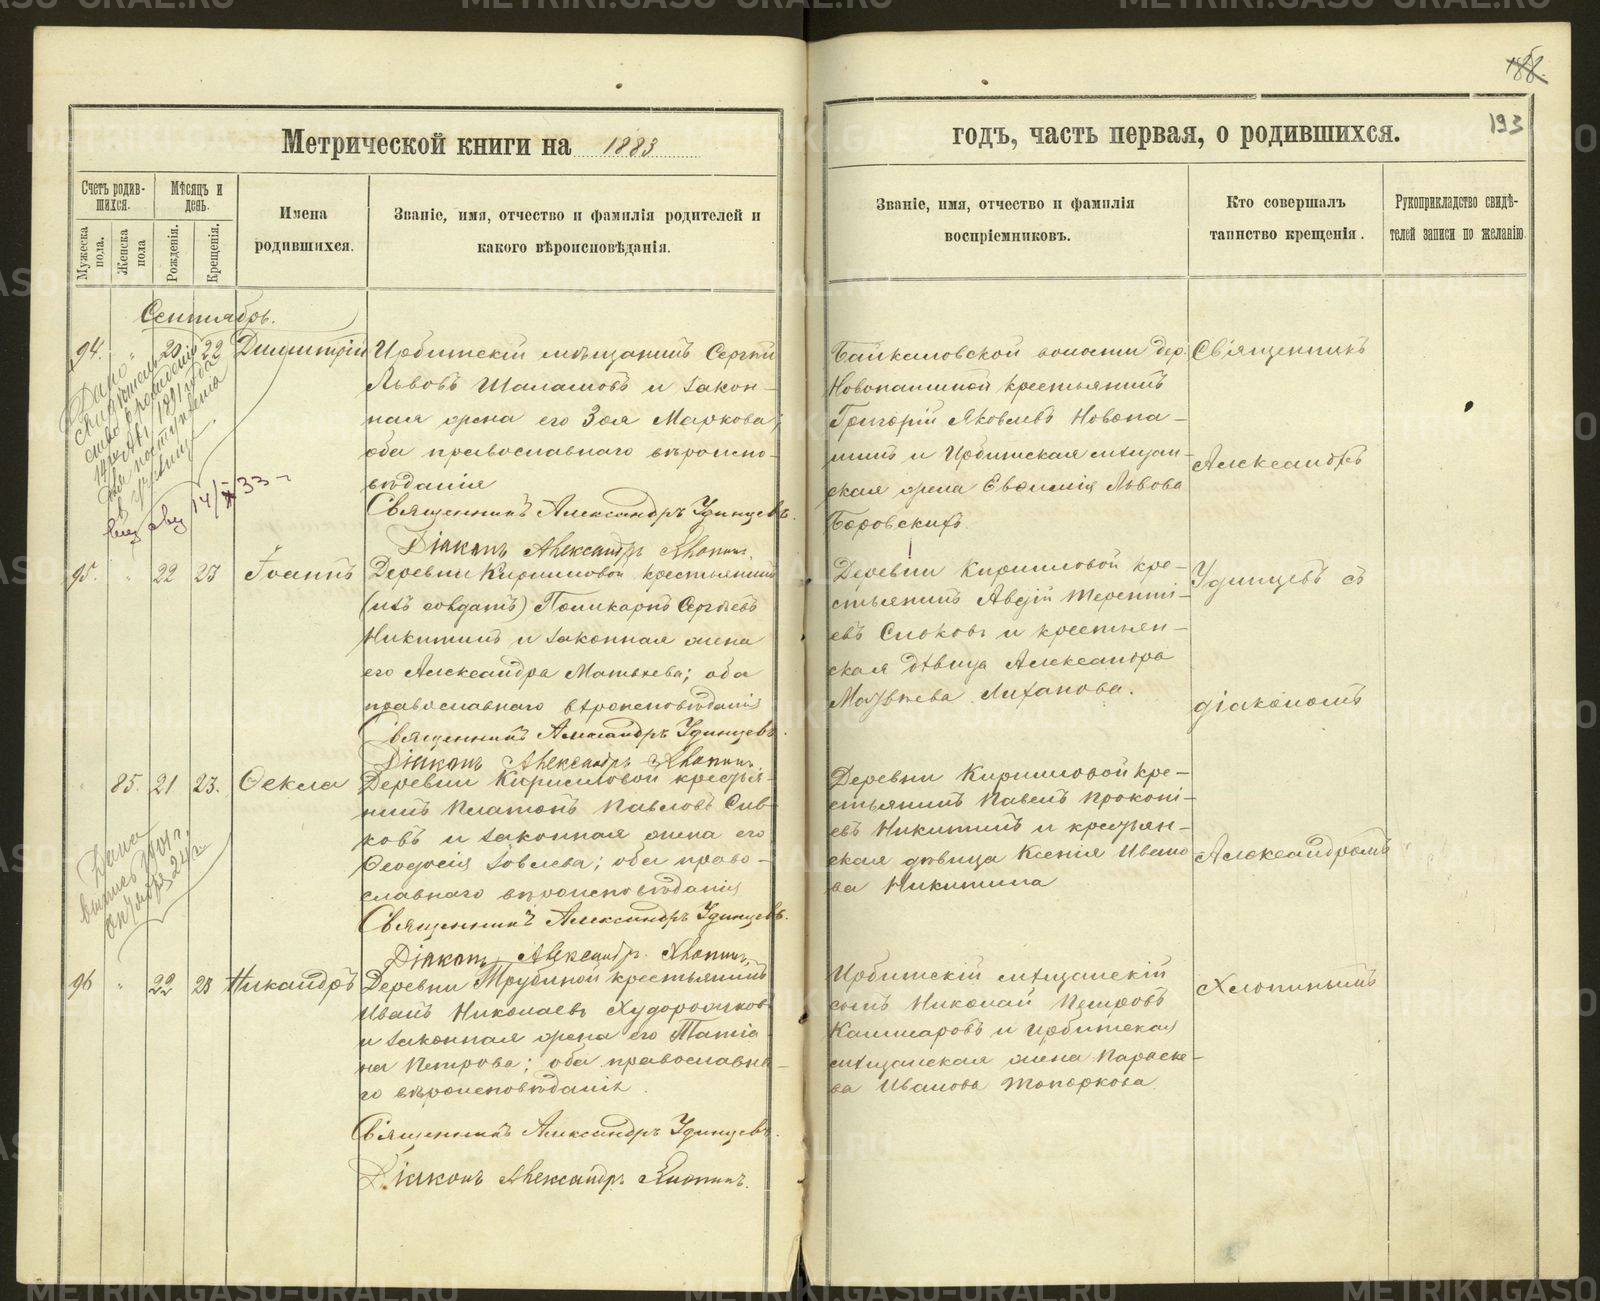 188.
193
Метрической книги на 1883
годъ, часть первая, о родившихся.
Счетъ родив-
шихся.
Мѣсяцъ и
день.
Мужеска пола.
Женска пола
Рожденія.
Крещенія.
Имена
родившихся.
Званіе, имя, отчество и фамилія родителей и
какого вѣроисповѣданія.
Званіе, имя, отчество и фамилія
воспріемниковъ.
Кто совершалъ
таинство крещенія.
Рукоприкладство свидѣ-
телей записи по желанію.
Сентябрь.
94. " 20 22 Димитрій
Ирбитскій мѣщанинъ Сергѣй
Львовъ Шалашовъ и закон-
ная жена его Зоя Маркова;
оба православнаго вѣроиспо-
вѣданія
Священникъ Александръ Удинцевъ.
Діаконъ Александръ Хлопинъ.
Байкаловской волости дер.
Новопашиной крестьянинъ
Григорій Яковлевъ Новопа-
шинъ и Ирбитская мѣщан-
ская жена Евфимія Львова
Боровскихъ.
Священникъ
Александръ
Дано
1891 года
для поступленія
въ училищ
14/X 33
95. " 22 23 Іоаннъ
Деревни Кирилловой крестьянинъ
(изъ солдатъ) Поликарпъ Сергѣевъ
Никитинъ и законная жена
его Александра Матвѣева; оба
православнаго вѣроисповѣданія
Священникъ Александръ Удинцевъ.
Діаконъ Александръ Хлопинъ.
Деревни Кирилловой кре-
стьянинъ Авдій Терентi-
евъ Сивковъ и крестьян-
ская дѣвица Александра
Матвѣева Лиханова.
Удинцевъ съ
діакономъ
85. 21 23. Ѳекла
Деревни Кирилловой крестья-
нинъ Платонъ Павловъ Сив-
ковъ и законная жена его
Ѳеодосія Іовлева; оба право-
славнаго вѣроисповѣданія
Священникъ Александръ Удинцевъ.
Діаконъ Александръ Хлопинъ.
Деревни Кирилловой кре-
стьянинъ Павелъ Прокопі-
евъ Никитинъ и крестьян-
ская дѣвица Ксенія Ивано
ва Никитина
Александромъ
Дана
96 " 22 23 Никандръ
Деревни Трубиной крестьянинъ
Иванъ Николаевъ Худорожковъ
и законная жена его Татіа-
на Петрова; оба православна-
го вѣроисповѣданія.
Священникъ Александръ Удинцевъ.
Діаконъ Александръ Хлопинъ.
Ирбитскій мѣщанскій
сынъ Николай Петровъ
Кашшаровъ и Ирбитская
мѣщанская жена Параске-
ва Иванова Топоркова.
Хлопинымъ